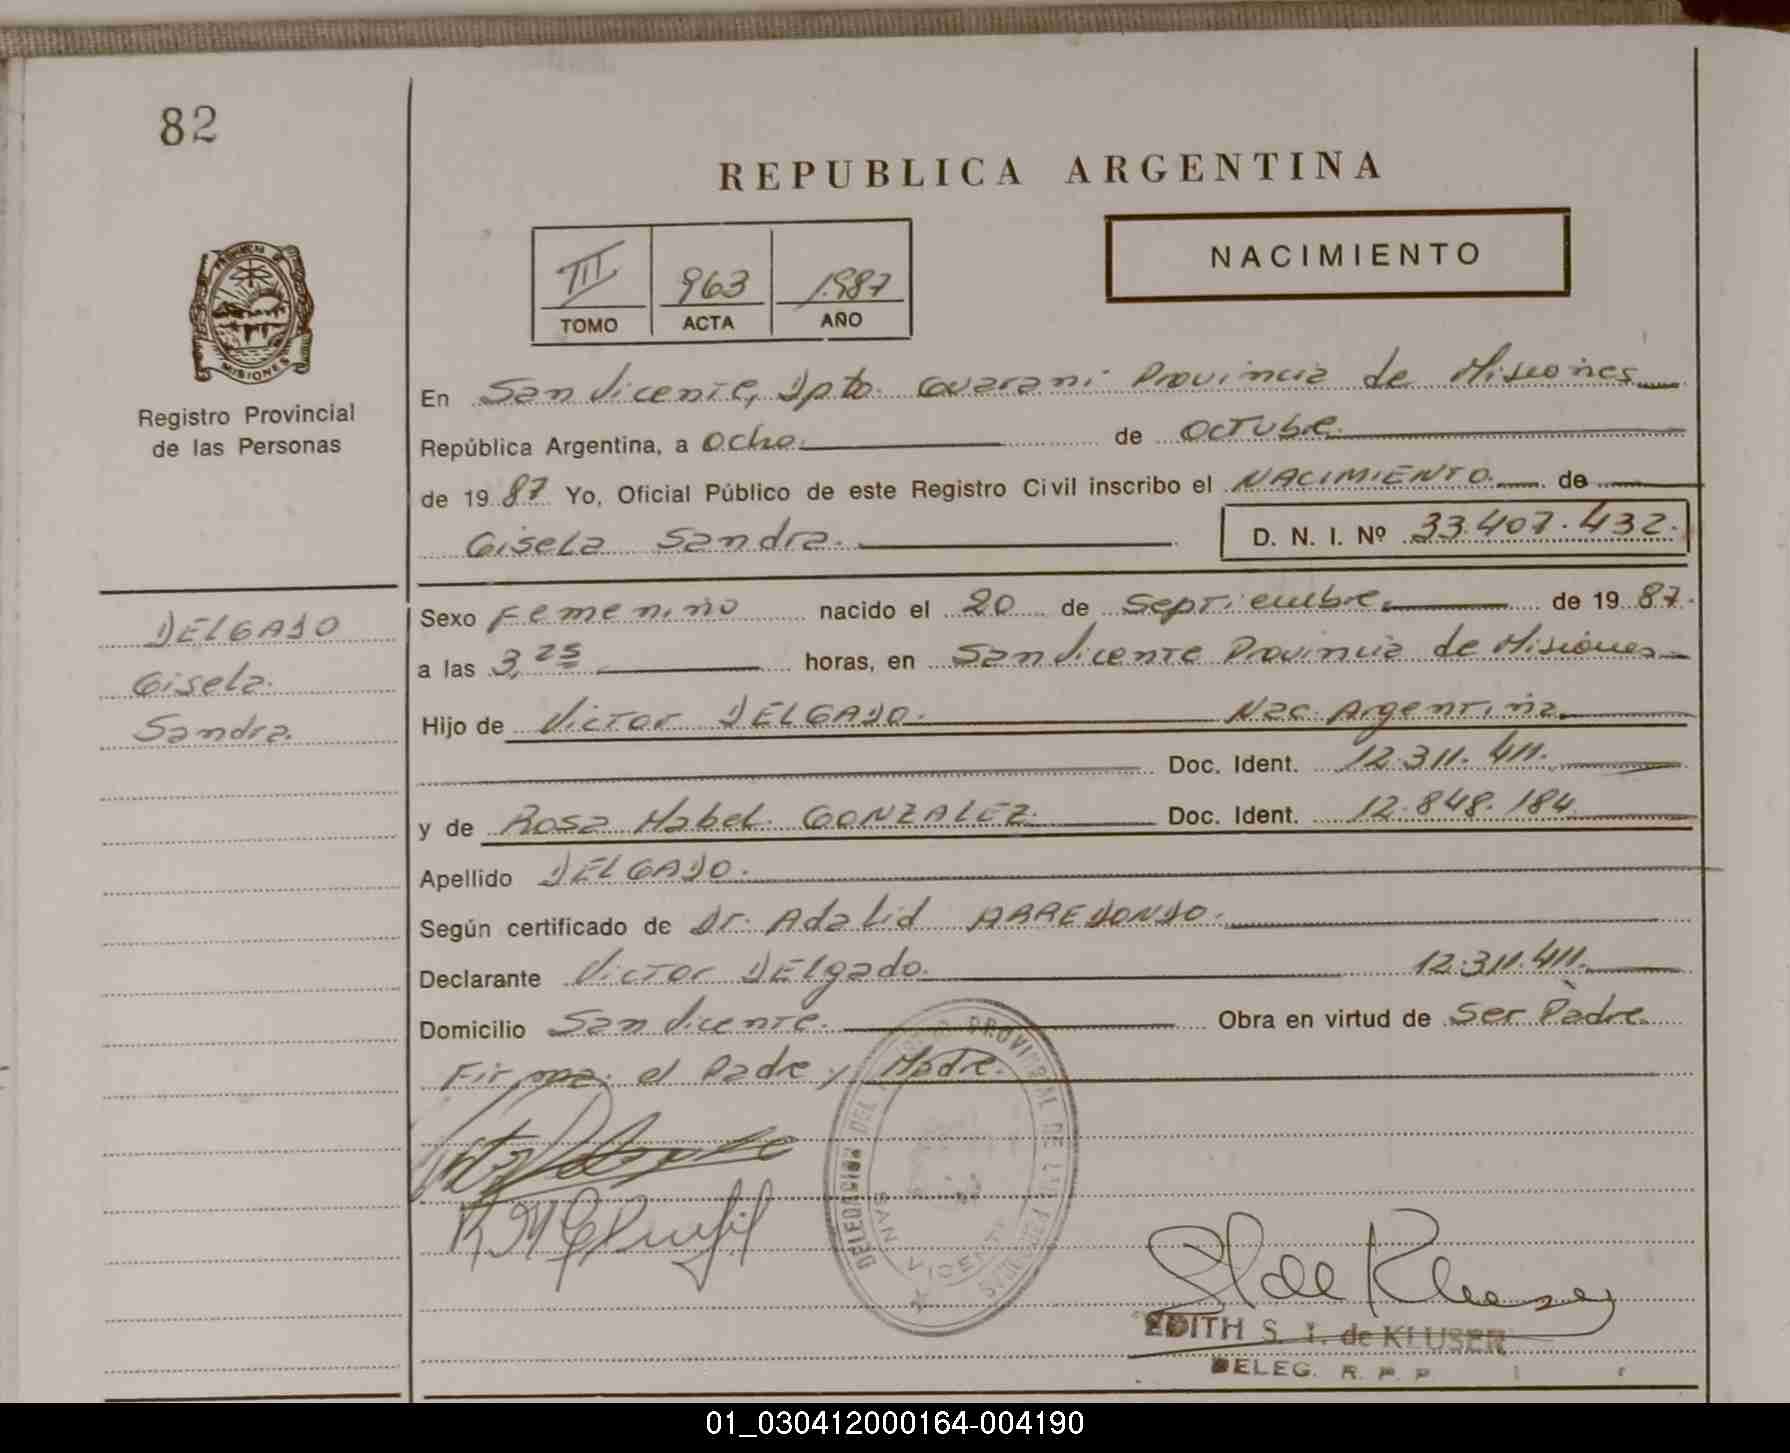 82
REPUBLICA ARGENTINA
NACIMIENTO
III 963 1987
TOMO ACTA AÑO
PROVINCIA DE
MISIONES
Registro Provincial
de las Personas
En San Vicente, Dpto. Guarani Provincia de Misiones
República Argentina, a ocho de octubre
de 19 87 Yo, Oficial Público de este Registro Civil inscribo el NACIMIENTO de
Gisela Sandra. D. N. I. Nº 33.407.432.
DELGADO
Gisela
Sandra.
Sexo Femenino nacido el 20 de Septiembre de 19 87.
a las 3,25 horas, en San Vicente Provincia de Misiones
Hijo de Victor DELGADO. Nac. Argentina
Doc. Ident. 12.311.411.
y de Rosa Mabel GONZALEZ Doc. Ident. 12.848.184
Apellido DELGADO.
Según certificado de Dr. Adalid ARREDONDO.
Declarante Victor DElgado. 12.311.411.
Domicilio San Vicente. Obra en virtud de Ser Padre.
Firma: el Padre y Madre.
DELEGACION DEL REGISTRO PROVINCIAL DE LAS PERSONAS
SAN VICENTE
EDITH S. I. de KLUSER
DELEG. R. P. P
01_030412000164-004190